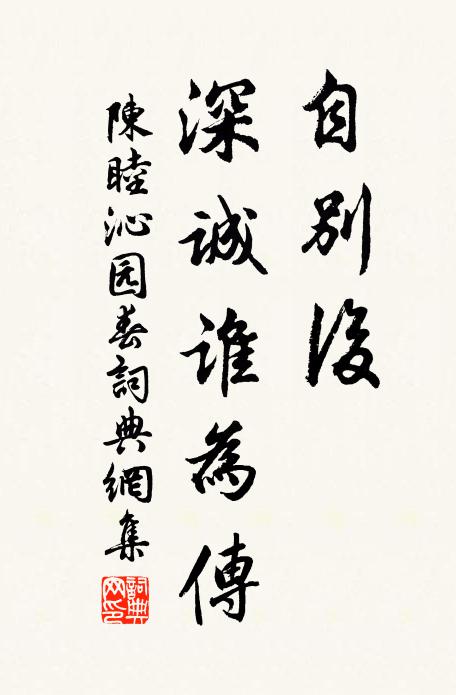 自別後
深誠誰為傳
陳睦沁园春詞典網集
詞典网印